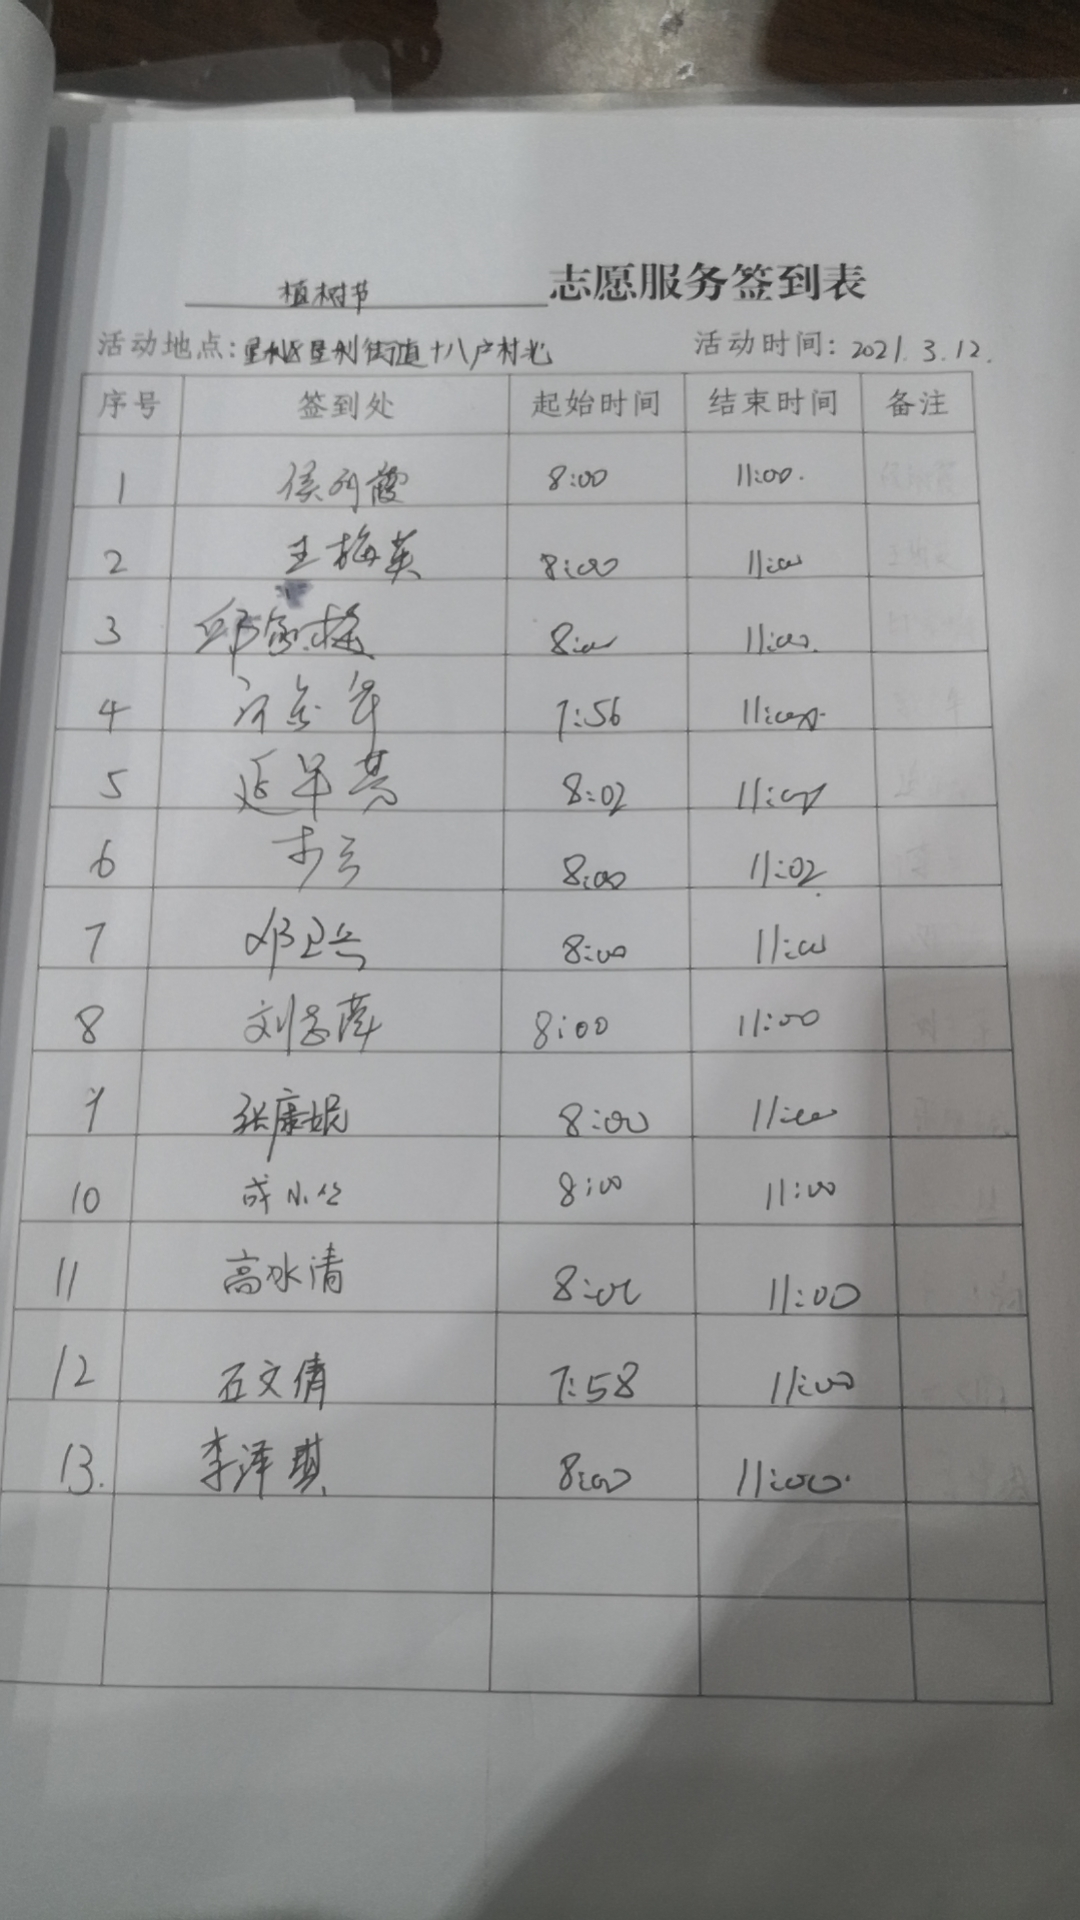 植树节 志愿服务签到表
活动地点：垦利区垦利街道十八户村北 活动时间：2021.3.12.
序号 签到处 起始时间 结束时间 备注
1 8:00 11:00.
2 王梅英 8:00 11:00
3 8:00 11:00.
4 7:56 11:00
5 延早英 8:02 11:00
6 8:00 11:02
7 邓卫兵 8:00 11:00
8 刘志萍 8:00 11:00
9 张康妮 8:00 11:00
10 成小公 8:00 11:00
11 高冰清 8:00 11:00
12 石文倩 7:58 11:00
13. 李泽琪 8:00 11:00.